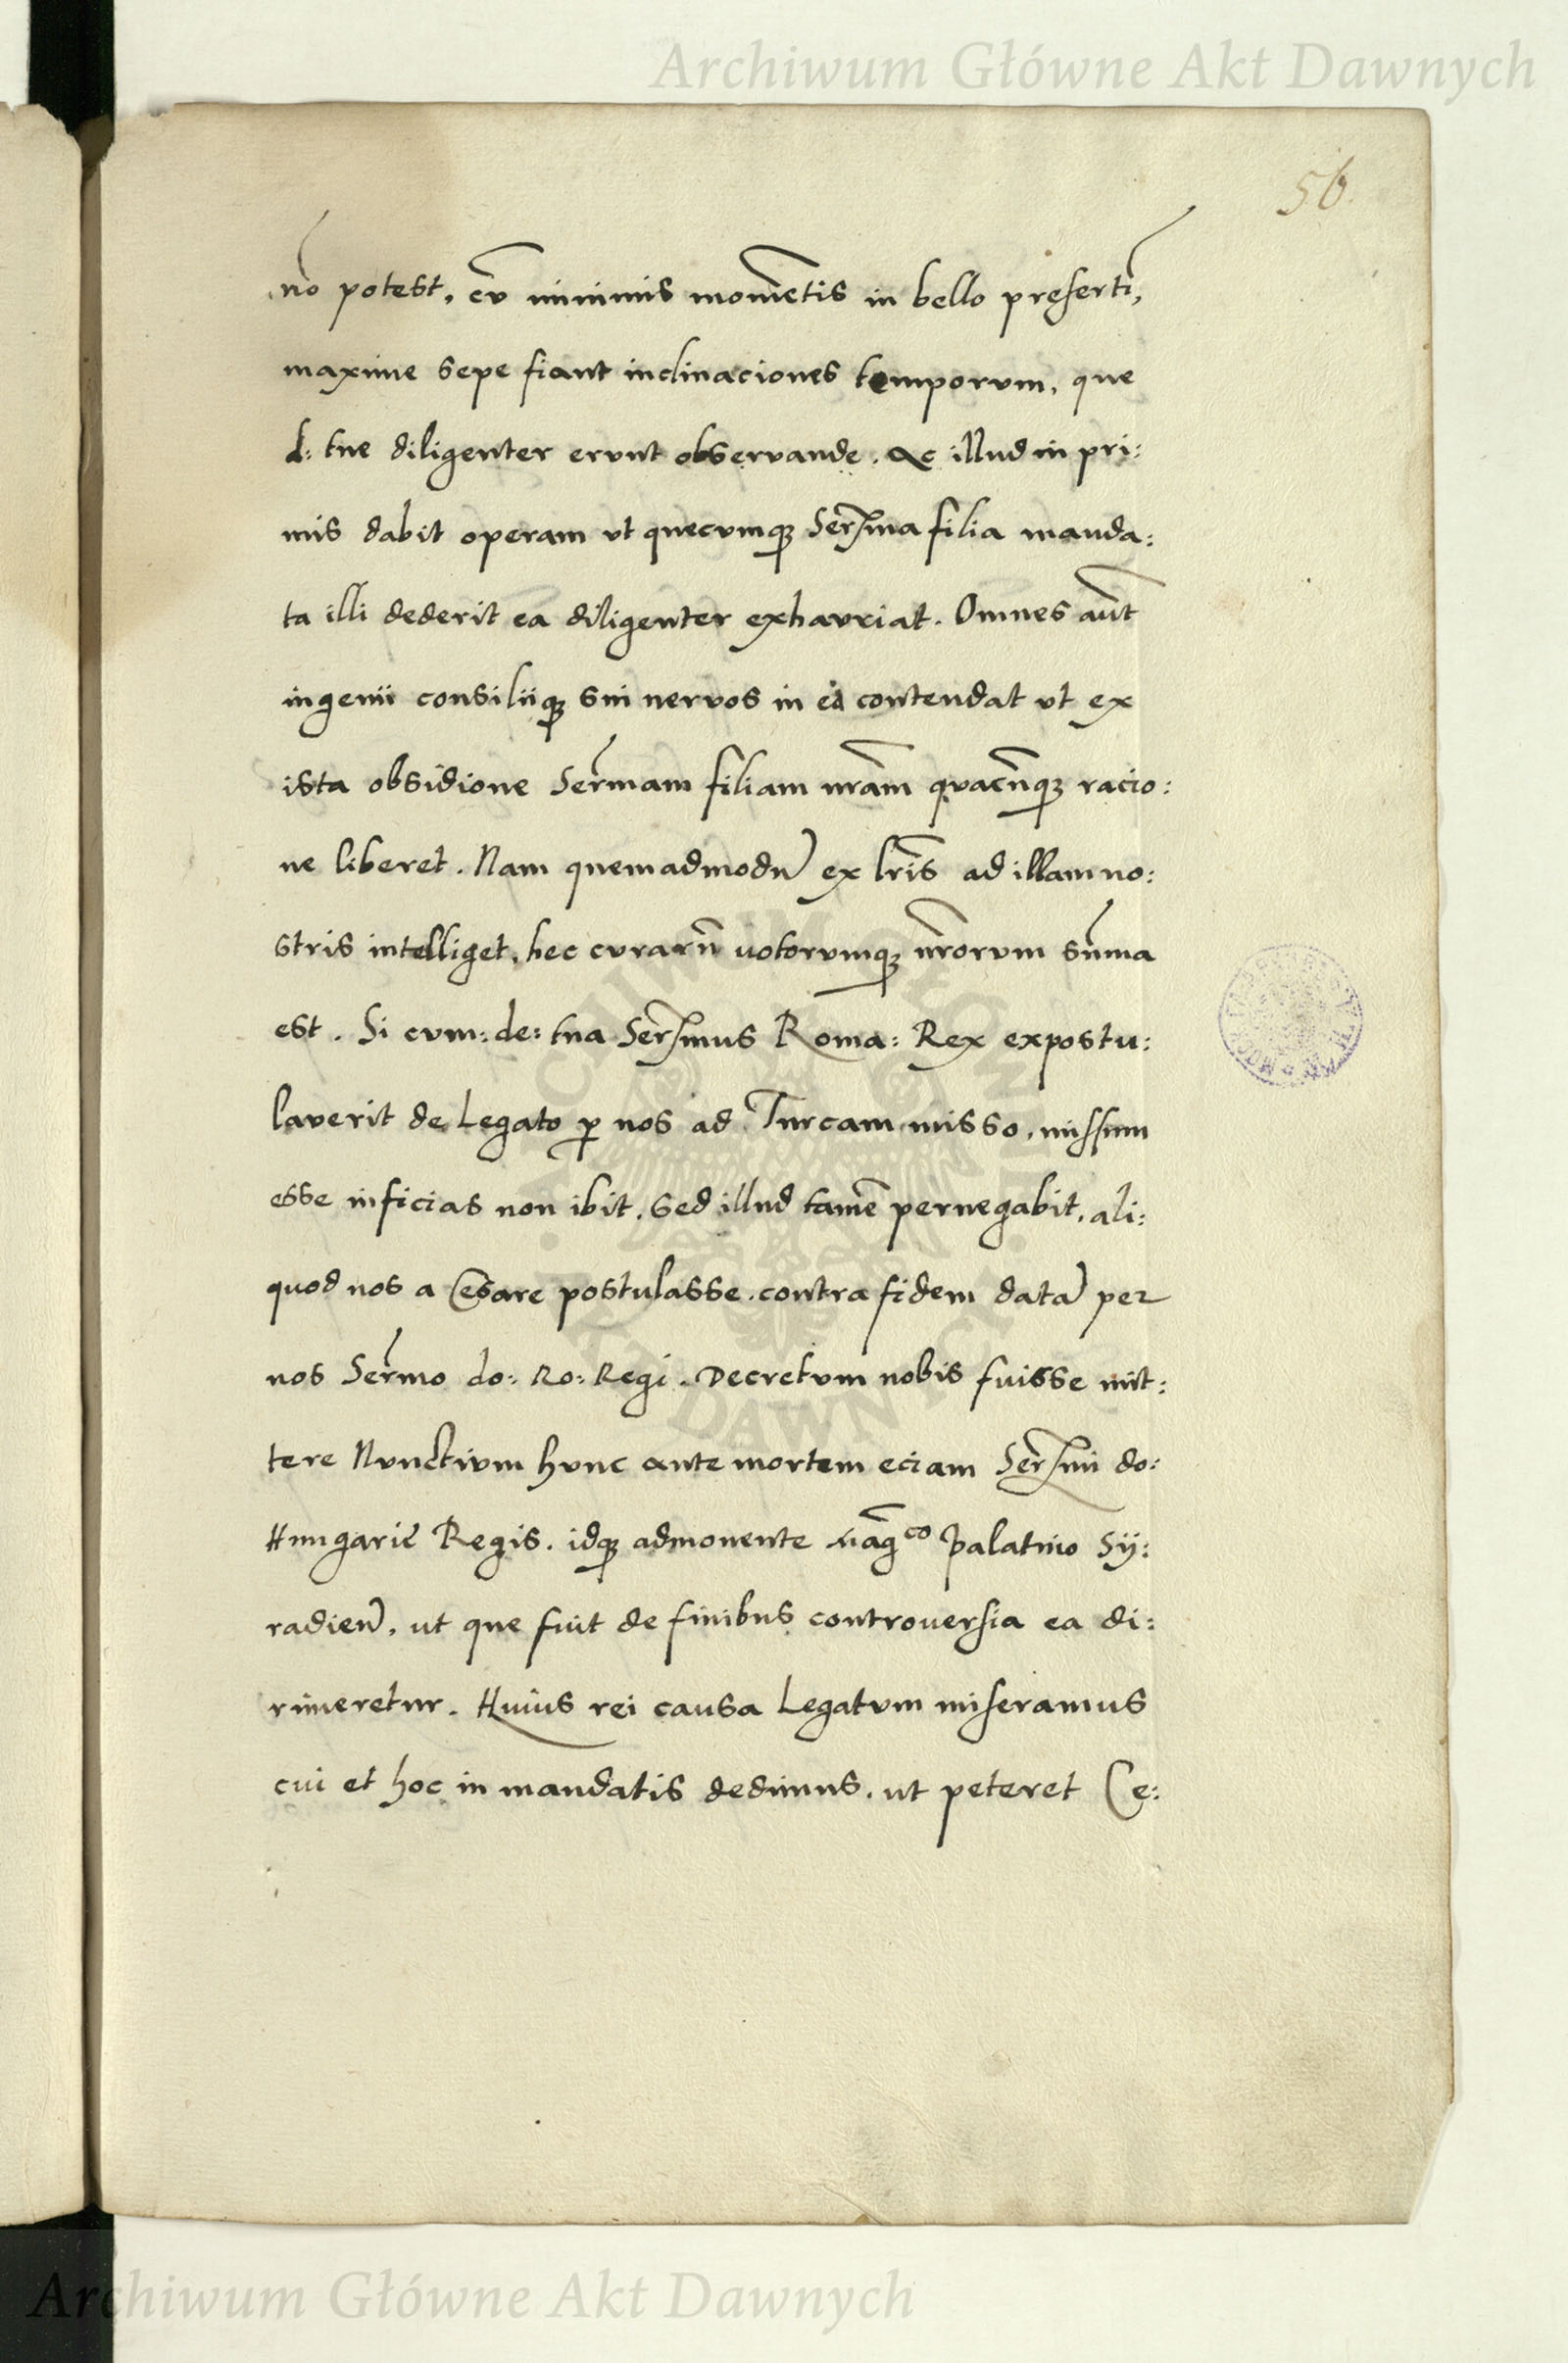 Archiwum Główne Akt Dawnych
56.
nō potest, cū minimis momētis in bello presertī,
maxime sepe fiant inclinaciones temporum, que
d: tue diligenter erunt observande. Ac illud in pri:
mis dabit operam ut quecumqȝ Serssma filia manda:
ta illi dederit ea diligenter exhauriat. Omnes aūt
ingenii consiliiqȝ sui nervos in id contendat ut ex
ista obsidione Serm̄am filiam nr̄am quacūqȝ racio:
ne liberet. Nam quemadmodū ex lr̄is ad illam no:
stris intelliget, hec curarū votorumqȝ nr̄orum sūma
est. Si cum: de: tua Serssmus Roma: Rex expostu:
laverit de Legato ꝑ nos ad Turcam misso, missum
esse inficias non ibit, sed illud tamē pernegabit, ali:
quod nos a Cesare postulasse, contra fidem datā per
nos Serm̄o do: Ro: Regi. Decretum nobis fuisse mit:
tere Nunctium hunc ante mortem eciam Serssmi do:
Hungarie Regis, idqȝ admonente Mag̅co Palatino Sy:
radieñ, ut que fuit de finibus controversia ea di:
rimeretur. Huius rei causa Legatum miseramus
cui et hoc in mandatis dedimus, ut peteret Ce:
Archiwum Główne Akt Dawnych